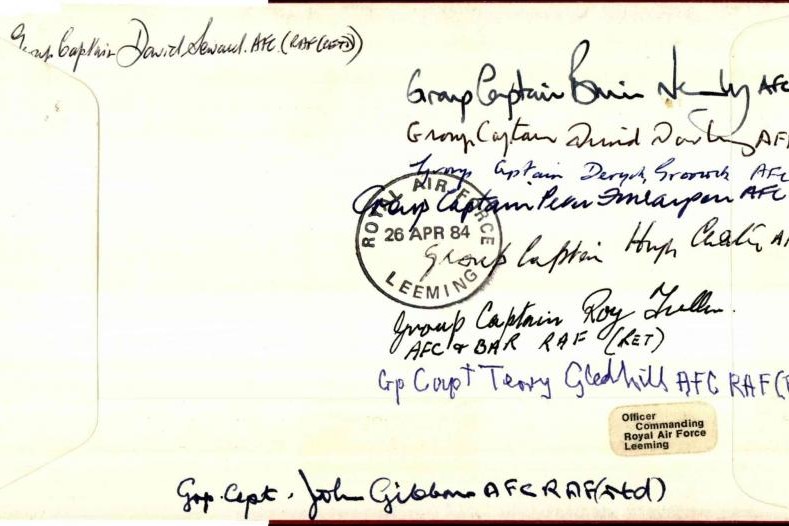 Group Captain David Seward. AFC. (RAF (RETD))
Group Captain Brian AFC
Group Captain David AF
Group Captain Deryck AFC
Group Captain Peter AFC
ROYAL AIR FORCE
26 APR 84
LEEMING
Group Captain Hugh
Group Captain Roy
AFC & BAR RAF (RET)
Gp Capt Terry Gledhill AFC RAF (
Officer
Commanding
Royal Air Force
Leeming
Grp. Capt. John Gibbons AFC RAF (rtd)